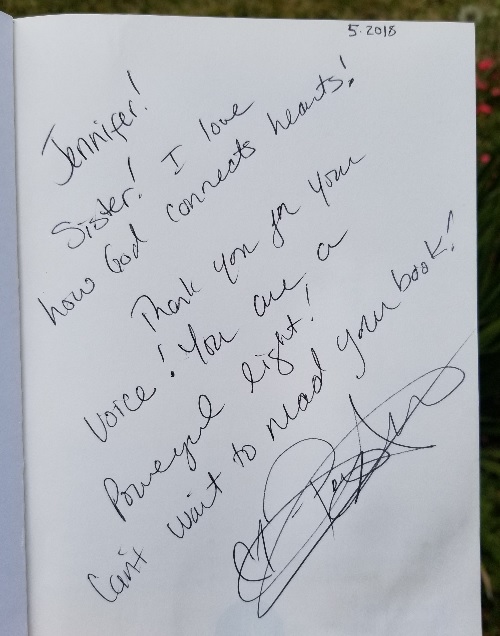 5.2018
Jennifer!
Sister! I love
how God connects hearts!
Thank you for your
voice! You are a
Powerful light!
Can't wait to read your book!